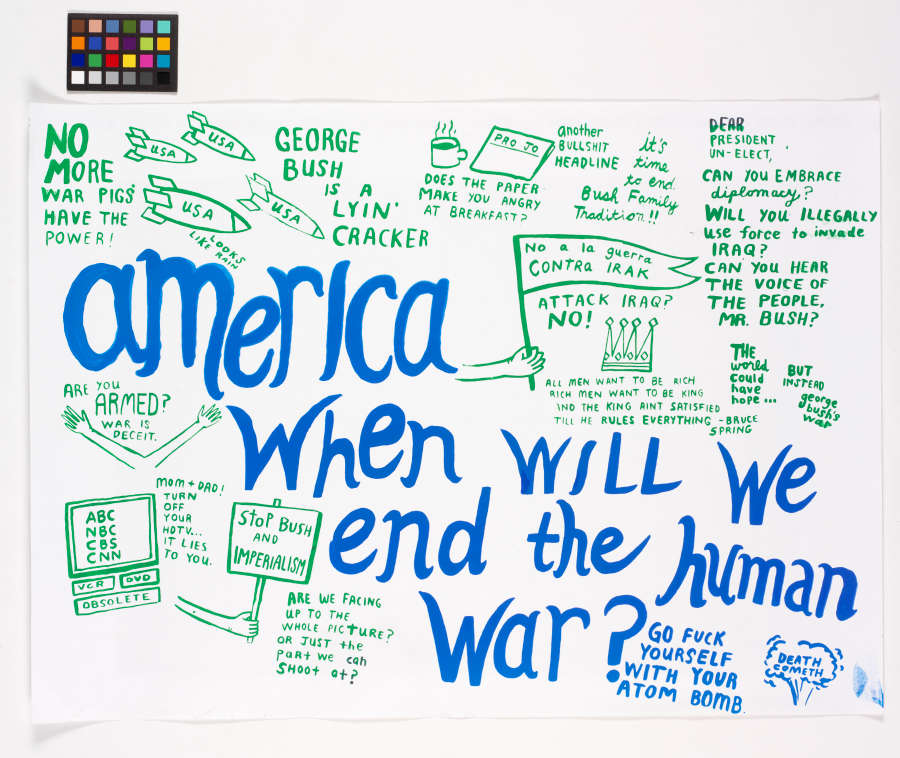 NO
MORE
WAR PIGS
HAVE THE
POWER!
USA
USA
USA
USA
LOOKS
LIKE RAIN
GEORGE
BUSH
IS A
LYIN'
CRACKER
PRO JO
DOES THE PAPER
MAKE YOU ANGRY
AT BREAKFAST?
another
BULLSHIT
HEADLINE
it's
time
to end
Bush Family
Tradition!!
DEAR
PRESIDENT
UN-ELECT,
CAN YOU EMBRACE
diplomacy?
WILL YOU ILLEGALLY
use force to invade
IRAQ?
CAN YOU HEAR
THE VOICE OF
THE PEOPLE,
MR. BUSH?
No a la guerra
CONTRA IRAK
ATTACK IRAQ?
NO!
ALL MEN WANT TO BE RICH
RICH MEN WANT TO BE KING
IND THE KING AINT SATISFIED
TILL HE RULES EVERYTHING -BRUCE
SPRING
THE
world
could
have
hope...
BUT
INSTEAD
george
bush's
war
america
When WILL We
end the human
War?
ARE YOU
ARMED?
WAR IS
DECEIT.
ABC
NBC
CBS
CNN
VCR DVD
OBSOLETE
MOM + DAD!
TURN
OFF
YOUR
HDTV...
IT LIES
TO YOU.
STOP BUSH
AND
IMPERIALISM
ARE WE FACING
UP TO THE
WHOLE PICTURE?
OR JUST the
part we can
SHOOT at?
GO FUCK
YOURSELF
WITH YOUR
ATOM BOMB.
DEATH
COMETH